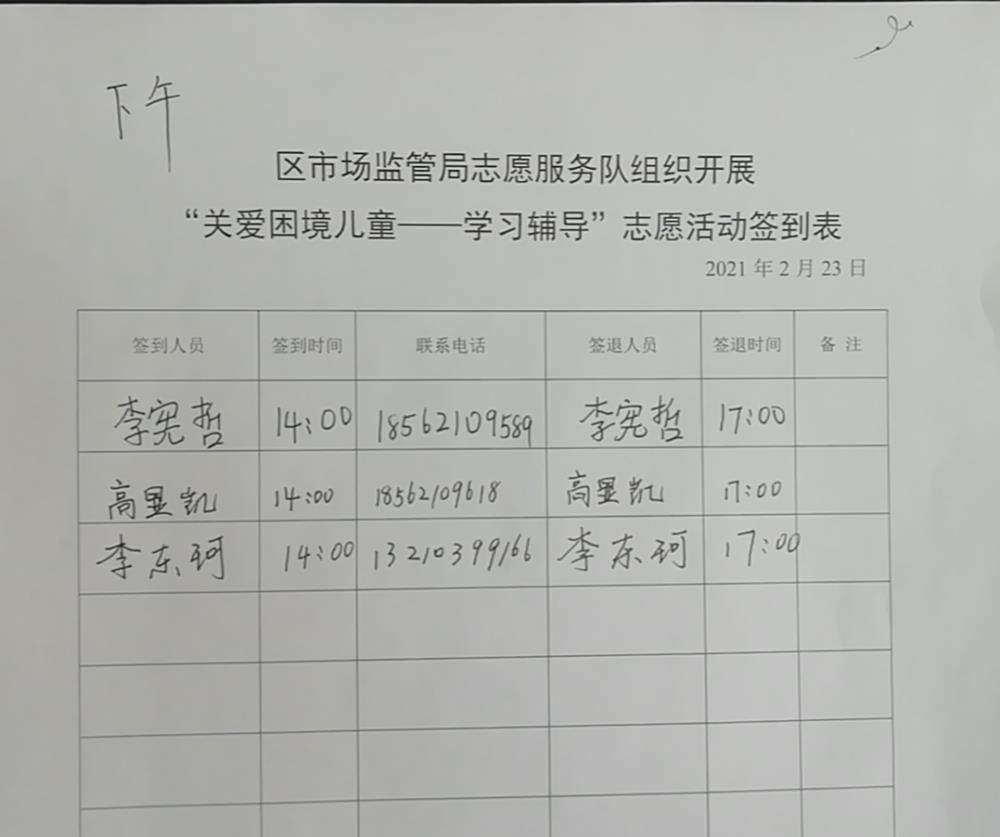 下午
区市场监管局志愿服务队组织开展
“关爱困境儿童——学习辅导”志愿活动签到表
2021年2月23日
签到人员 签到时间 联系电话 签退人员 签退时间 备 注
李宪哲 14:00 18562109589 李宪哲 17:00
高显凯 14:00 18562109618 高显凯 17:00
李东珂 14:00 13210399166 李东珂 17:00